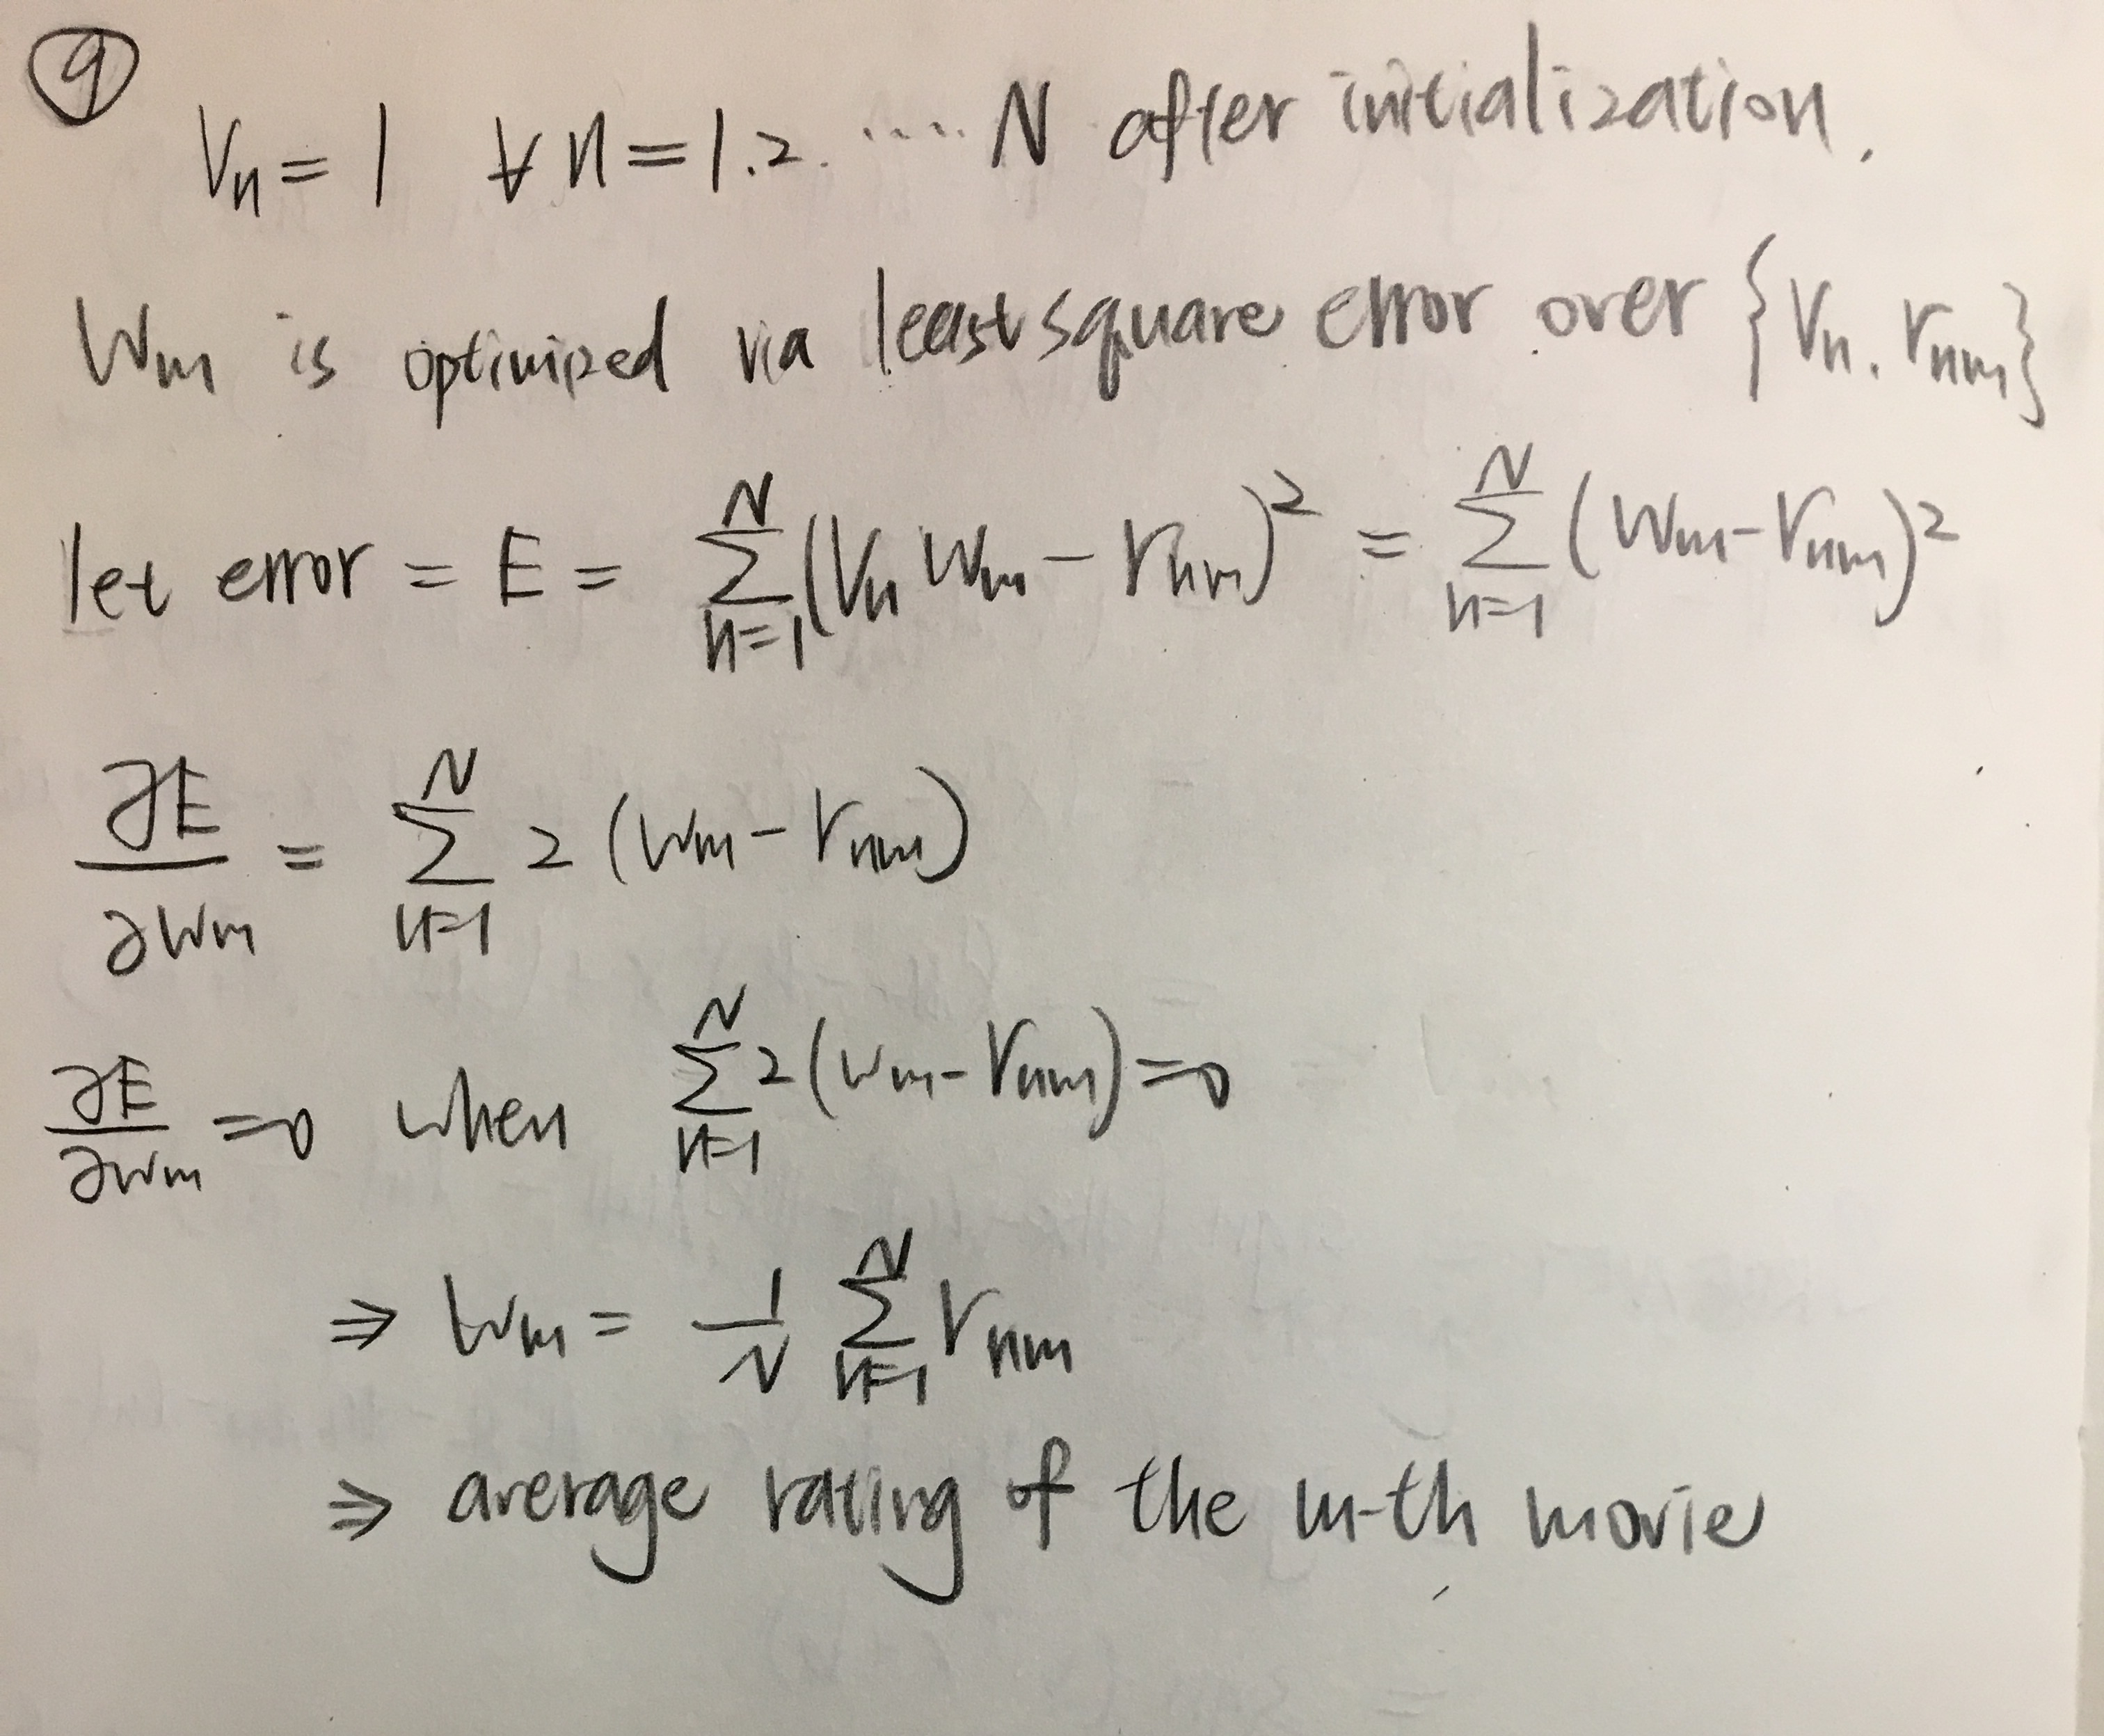 ⑨
Vn = 1 ∀ n = 1.2. .... N after initialization.
Wm is optimized via least square error over {Vn. rnm}
let error = E = ∑_{n=1}^{N} (Vn Wm - rnm)² = ∑_{n=1}^{N} (Wm - rnm)²
∂E/∂Wm = ∑_{n=1}^{N} 2 (Wm - rnm)
∂E/∂Wm = 0 when ∑_{n=1}^{N} 2 (Wm - rnm) = 0
⇒ Wm = 1/N ∑_{n=1}^{N} rnm
⇒ average rating of the m-th movie